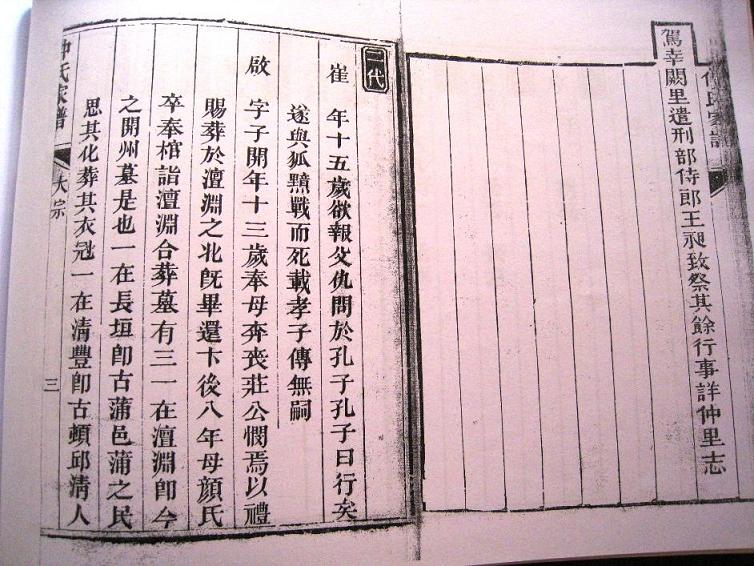 駕幸闕里遣刑部侍郎王昶致祭其餘行事詳仲里志
二代
崔　年十五歲欲報父仇問於孔子孔子曰行矣
遂與狐黯戰而死載孝子傳無嗣
啟　字子開年十三歲奉母奔喪莊公憫焉以禮
賜葬於澶淵之北旣畢還卞後八年母顔氏
卒奉棺詣澶淵合葬墓有三一在澶淵卽今
之開州墓是也一在長垣卽古蒲邑蒲之民
思其化葬其衣冠一在清豐卽古頓邱清人
氏家譜
大宗
三